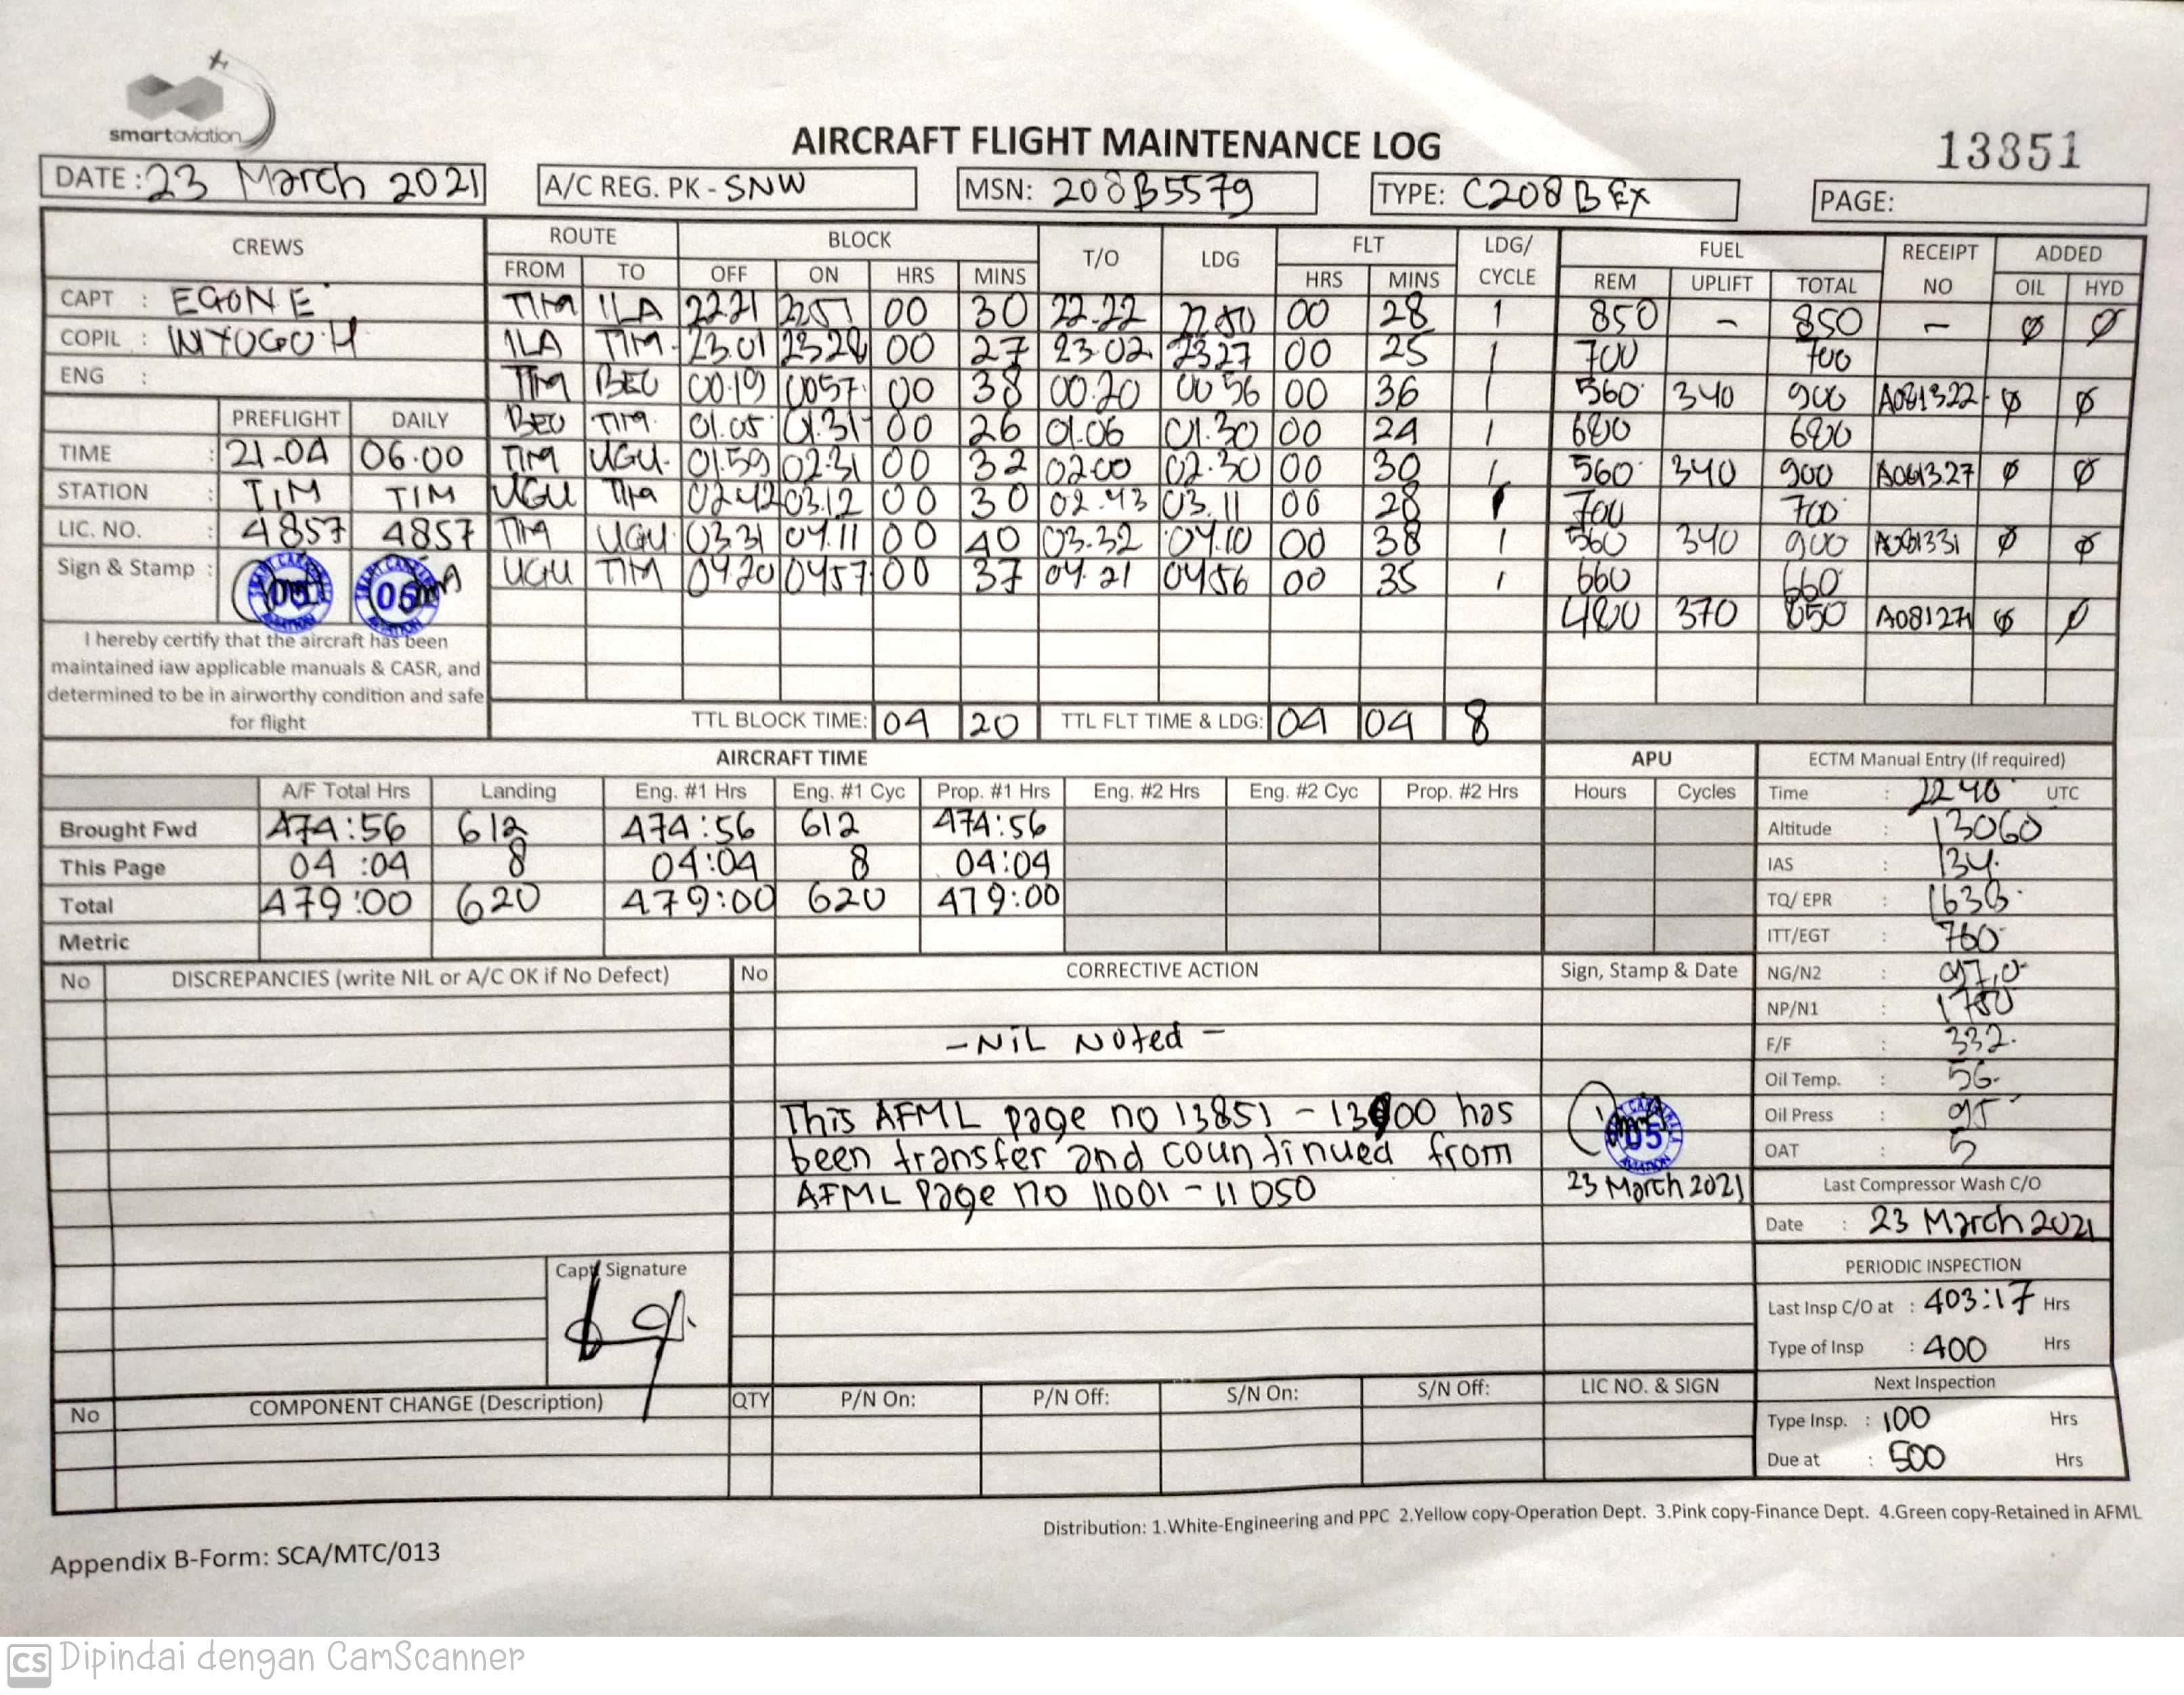 smartaviation
AIRCRAFT FLIGHT MAINTENANCE LOG
13851
DATE: 23 March 2021 A/C REG. PK - SNW MSN: 208B5579 TYPE: C208B EX PAGE:
CREWS ROUTE BLOCK T/O LDG FLT LDG/ CYCLE FUEL RECEIPT NO ADDED
FROM TO OFF ON HRS MINS HRS MINS REM UPLIFT TOTAL OIL HYD
CAPT : EGON E
COPIL : INYOGO H
ENG :
TIM ILA 22.21 2251 00 30 22.22 2250 00 28 1 850 - 850 - Ø Ø
ILA TIM 23.01 2328 00 27 23.02 2327 00 25 1 700 700
TIM BEU 00.19 0057 00 38 00.20 0056 00 36 1 560 340 900 A081322 Ø Ø
BEU TIM 01.05 01.31 00 26 01.06 01.30 00 24 1 680 680
TIM UGU 01.59 02.31 00 32 02.00 02.30 00 30 1 560 340 900 A081327 Ø Ø
UGU TIM 02.42 03.12 00 30 02.43 03.11 00 28 1 700 700
TIM UGU 03.31 04.11 00 40 03.32 04.10 00 38 1 560 340 900 A081331 Ø Ø
UGU TIM 04.20 0457 00 37 04.21 0456 00 35 1 660 660
480 370 850 A081271 Ø Ø
PREFLIGHT DAILY
TIME : 21-04 06.00
STATION : TIM TIM
LIC. NO. : 4857 4857
Sign & Stamp : 05 05
I hereby certify that the aircraft has been
maintained iaw applicable manuals & CASR, and
determined to be in airworthy condition and safe
for flight
TTL BLOCK TIME: 04 20 TTL FLT TIME & LDG: 04 04 8
AIRCRAFT TIME APU
A/F Total Hrs Landing Eng. #1 Hrs Eng. #1 Cyc Prop. #1 Hrs Eng. #2 Hrs Eng. #2 Cyc Prop. #2 Hrs Hours Cycles
Brought Fwd 474:56 612 474:56 612 474:56
This Page 04:04 8 04:04 8 04:04
Total 479:00 620 479:00 620 479:00
Metric
ECTM Manual Entry (If required)
Time : 2240 UTC
Altitude : 13060
IAS : 134
TQ/ EPR : 1638
ITT/EGT : 760
NG/N2 : 97,0
NP/N1 : 1750
F/F : 332
Oil Temp. : 56
Oil Press : 95
OAT : 5
Last Compressor Wash C/O
Date : 23 March 2021
PERIODIC INSPECTION
Last Insp C/O at : 403:17 Hrs
Type of Insp : 400 Hrs
Next Inspection
Type Insp. : 100 Hrs
Due at : 500 Hrs
No DISCREPANCIES (write NIL or A/C OK if No Defect) No CORRECTIVE ACTION Sign, Stamp & Date
- NIL Noted -
This AFML page no 13851 - 13900 has
been transfer and countinued from
AFML Page no 11001 - 11050
05
23 March 2021
Capt Signature
No COMPONENT CHANGE (Description) QTY P/N On: P/N Off: S/N On: S/N Off: LIC NO. & SIGN
Distribution: 1.White-Engineering and PPC 2.Yellow copy-Operation Dept. 3.Pink copy-Finance Dept. 4.Green copy-Retained in AFML
Appendix B-Form: SCA/MTC/013
CS Dipindai dengan CamScanner